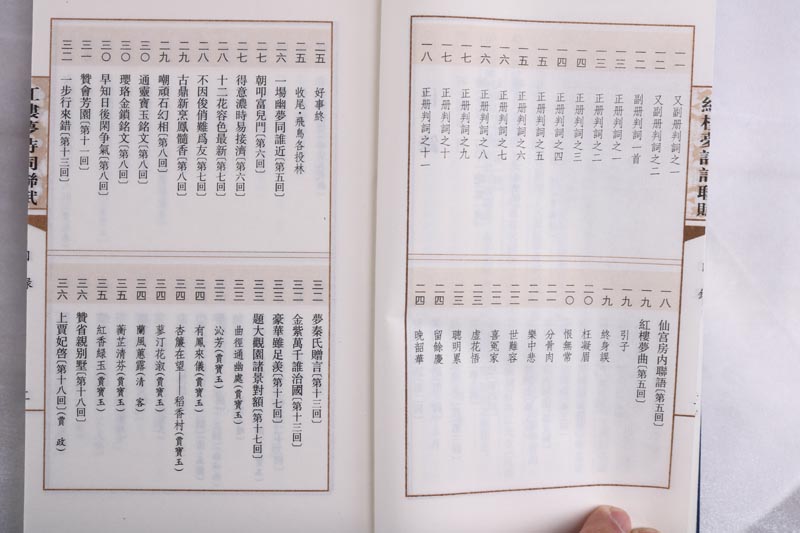 紅樓夢詩詞聯賦
一一 又副册判詞之一
一二 又副册判詞之二
一二 副册判詞一首
一三 正册判詞之一
一三 正册判詞之二
一四 正册判詞之三
一四 正册判詞之四
一五 正册判詞之五
一五 正册判詞之六
一六 正册判詞之七
一六 正册判詞之八
一七 正册判詞之九
一七 正册判詞之十
一八 正册判詞之十一
一八 仙宮房内聯語[第五回]
一九 紅樓夢曲[第五回]
一九 引子
一九 終身誤
二〇 枉凝眉
二〇 恨無常
二一 分骨肉
二一 樂中悲
二二 世難容
二二 喜冤家
二三 虚花悟
二三 聰明累
二四 留餘慶
二四 晚韶華
二五 好事終
二五 收尾·飛鳥各投林
二六 一場幽夢同誰近[第五回]
二七 朝叩富兒門[第六回]
二七 得意濃時易接濟[第六回]
二八 十二花容色最新[第七回]
二八 不因俊俏難爲友[第七回]
二九 古鼎新烹鳳髓香[第八回]
二九 嘲頑石幻相[第八回]
三〇 通靈寶玉銘文[第八回]
三〇 瓔珞金鎖銘文[第八回]
三〇 早知日後閑争氣[第八回]
三一 贊會芳園[第十一回]
三二 一步行來錯[第十三回]
三二 夢秦氏贈言[第十三回]
三二 金紫萬千誰治國[第十三回]
三三 豪華雖足羨[第十七回]
三三 題大觀園諸景對額[第十七回]
三三 曲徑通幽處(賈寶玉)
三三 沁芳(賈寶玉)
三四 有鳳來儀(賈寶玉)
三四 杏簾在望——稻香村(賈寶玉)
三四 蓼汀花溆(賈寶玉)
三四 蘭風蕙露(清 客)
三五 蘅芷清芬(賈寶玉)
三五 紅香緑玉(賈寶玉)
三六 贊省親别墅[第十八回]
三六 上賈妃啓[第十八回](賈 政)
紅樓夢詩詞聯賦
目錄
二